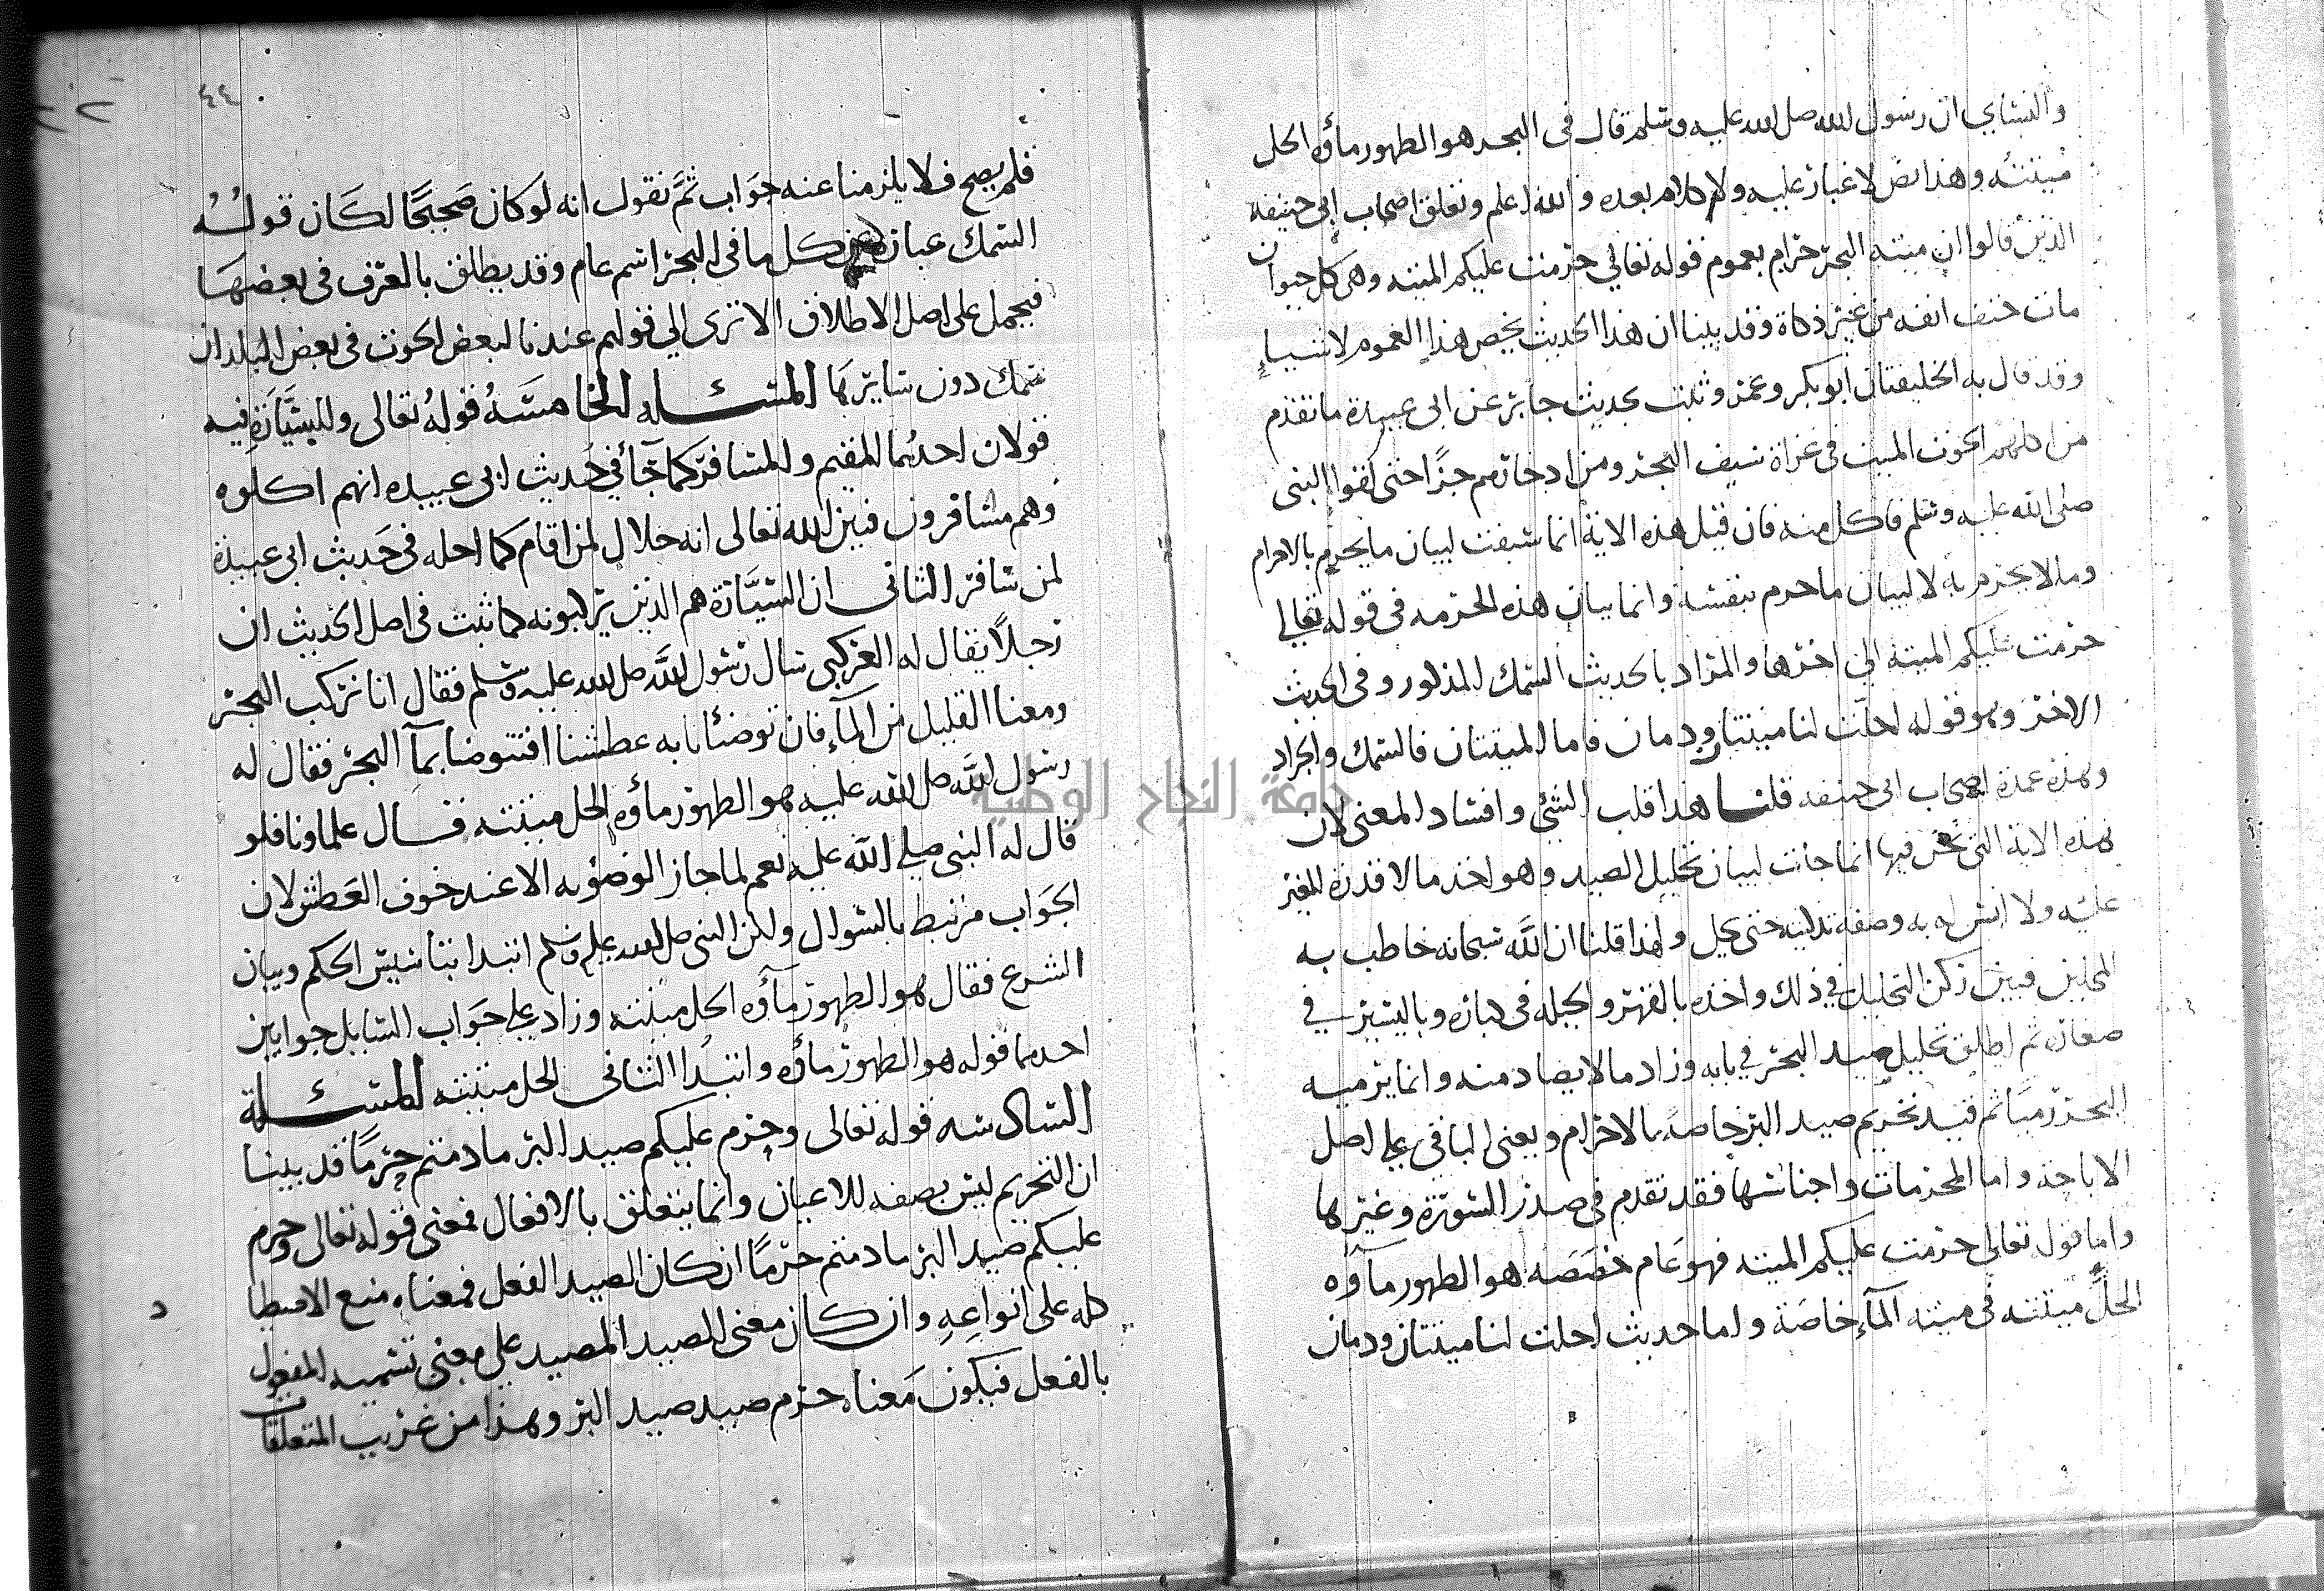 والنسائي ان رسول الله صلى الله عليه وسلم قال في البحر هو الطهور ماؤه الحل
ميتته وهذا نص لا غبار عليه ولا كلام بعده والله اعلم وتعلق اصحاب ابي حنيفه
الذين قالوا ان ميتته البحر حرام بعموم قوله تعالى حرمت عليكم الميته وهي كل حيوان
مات حتف انفه من غير ذكاة وقد بينا ان هذا الحديث يخص هذا العموم لاسيما
وقد قال به الخليفتان ابو بكر وعمر وثبت بحديث جابر عن ابي عبيدة ما تقدم
من اكلهم الحوت الميت في غزاة سيف البحر ومن ادخارهم جزا حتى لقوا النبي
صلى الله عليه وسلم فاكل منه فان قيل هذه الاية انما سيقت لبيان ما يحرم بالاحرام
وما لا يحرم به لا لبيان ما حرم بنفسه وانما بيان هذه الحرمه في قوله تعالى
حرمت عليكم الميته الى اخرها والمراد بالحديث السمك المذكور وفي الحديث
الاخر وهو قوله احلت لنا ميتتان ودمان فاما الميتتان فالسمك والجراد
وهذه عمدة اصحاب ابي حنيفه قلنا هذا قلب الشئ وافساد المعنى لان
هذه الاية التي نحن فيها انما جات لبيان تحليل الصيد وهو اخذ ما لا قدرة للمغير
عليه ولا انس له به وصفه تذكيته حتى يحل ولهذا قلنا ان الله سبحانه خاطب به
المحلين فبين ركن التحليل في ذلك واخذه بالقهر والحيله في كباره وباليسير في
صغاره ثم اطلق تحليل صيد البحر في بابه وزاد ما لا يصاد منه وانما يرميه
البحر رميا ثم قيد تحريم صيد البر خاصة بالاحرام وبقى الباقي على اصل
الاباحة واما المحرمات واجناسها فقد تقدم في صدر السورة وغيرها
واما قوله تعالى حرمت عليكم الميته فهو عام خصصه هو الطهور ماؤه
الحل ميتته في ميته الماء خاصة واما حديث احلت لنا ميتتان ودمان
٤٤
فلم يصح فلا يلزمنا عنه جواب ثم نقول انه لو كان صحيحا لكان قوله
السمك عبارة عن كل ما في البحر اسم عام وقد يطلق بالعرف في بعضها
فيحمل على اصل الاطلاق الا ترى الى قولهم عندنا لبعض الحوت في بعض البلدان
سمك دون سايرها المسئله الخامسه قوله تعالى وللسيارة فيه
قولان احدهما للمقيم والمسافر كما جآ في حديث ابي عبيده انهم اكلوه
وهم مسافرون فبين الله تعالى انه حلال لمن اقام كما احله في حديث ابي عبيدة
لمن سافر الثاني ان السيارة هم الذين يركبونه كما ثبت في اصل الحديث ان
رجلا يقال له العركي سال رسول الله صلى الله عليه وسلم فقال انا نركب البحر
ومعنا القليل من المآ فان توضئنا به عطشنا افنتوضا بمآ البحر فقال له
رسول الله صلى الله عليه هو الطهور ماؤه الحل ميتته قال علماونا فلو
قال له النبي صلى الله عليه نعم لما جاز الوضوء به الا عند خوف العطش لان
الجواب مرتبط بالسوال ولكن النبي صلى الله عليه وسلم ابتدا بتاسيس الحكم وبيان
الشرع فقال هو الطهور ماؤه الحل ميتته وزاد على جواب السايل جوابين
احدهما قوله هو الطهور ماؤه وابتدا الثاني الحل ميتته المسئلة
السادسه قوله تعالى وحرم عليكم صيد البر ما دمتم حرما قد بينا
ان التحريم ليس بصفه للاعيان وانما يتعلق بالافعال فمعنى قوله تعالى وحرم
عليكم صيد البر ما دمتم حرما ان كان الصيد الفعل فمعناه منع الاصطيا د
كله على انواعه وان كان معنى الصيد المصيد على معنى تسميه المفعول
بالفعل فيكون معناه حرم صيد صيد البر وهذا من غريب المتعلقات
جامعة النجاح الوطنية